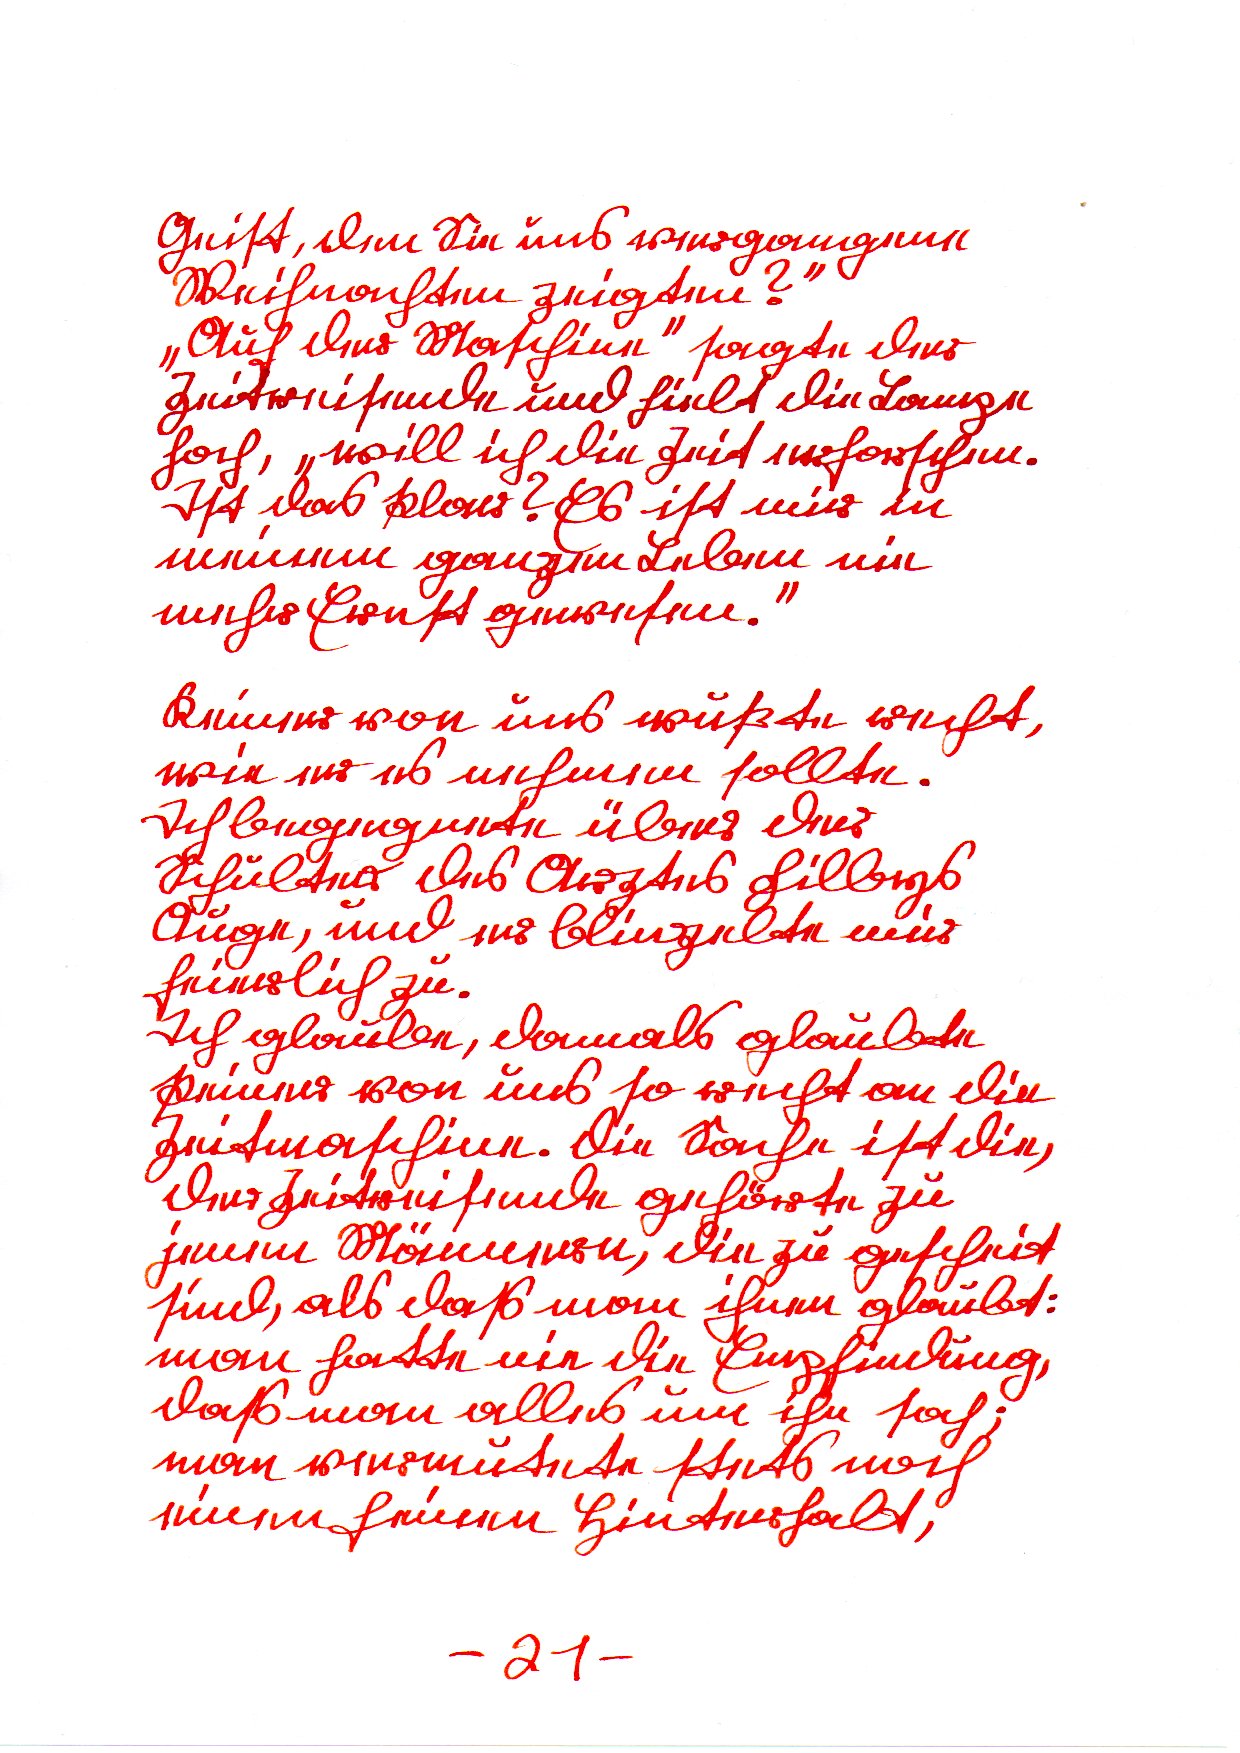 Geist, den Sie uns vergangene
Weihnachten zeigten?"
„Auf der Maschine" sagte der
Zeitreisende und hielt die Lampe
hoch, „will ich die Zeit erforschen.
Ist das klar? Es ist mir in
meinem ganzen Leben nie
mehr Ernst gewesen."
Keiner von uns wußte recht,
wie er es nehmen sollte.
Ich begegnete über der
Schulter des Arztes Hillbys
Auge, und er blinzelte mir
feierlich zu.
Ich glaube, damals glaubte
keiner von uns so recht an die
Zeitmaschine. Die Sache ist die,
der Zeitreisende gehörte zu
jenen Männern, die zu gescheit
sind, als daß man ihnen glaubt:
man hatte nie die Empfindung,
daß man alles um ihn sah;
man vermutete stets noch
einen feinen Hinterhalt,
- 21 -